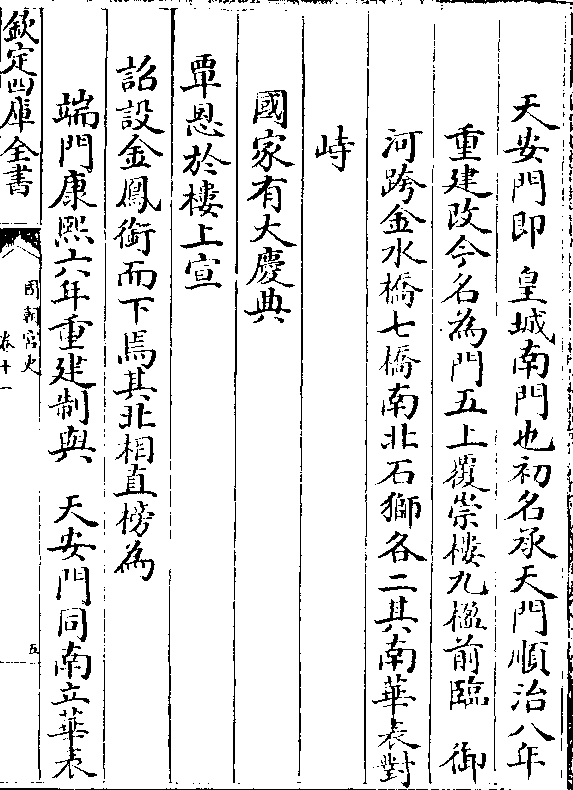 天安門即　皇城南門也初名承天門順治八年
重建改今名為門五上覆崇樓九楹前臨　御
河跨金水橋七橋南北石獅各二其南華表對
峙
國家有大慶典
覃恩於樓上宣
詔設金鳳銜而下焉其北相直榜為
端門康熙六年重建制與　天安門同南立華表
欽定四庫全書
國朝宮史
卷十一
五